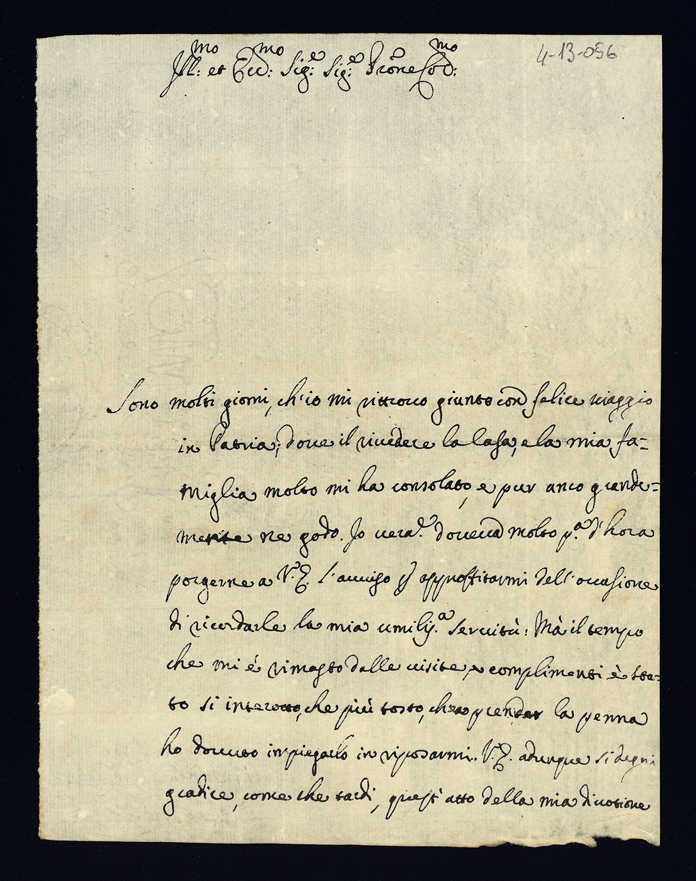 4-13-056
Ill:mo et Ecc:mo Sig:e Sig:e Prōne Col:mo
Sono molti giorni, ch'io mi ritrovo giunto con felice viaggio
in Patria; doue il riuedere la Casa, e la mia fa=
miglia molto mi ha consolato, e pur anco grande=
mente ne godo. Io uera.te doueua molto p.a d'hora
porgerne a V.E. l'auuiso p approfittarmi dell'occasione
di ricordarle la mia umiliss.a seruitù: Mà il tempo
che mi è rimasto dalle uisite, e complimenti è sta=
to si interrotto, che più tosto, che prender la penna
ho douuto impiegarlo in riposarmi. V.E. adunque si degni
gradire, come che tardi, quest'atto della mia diuotione